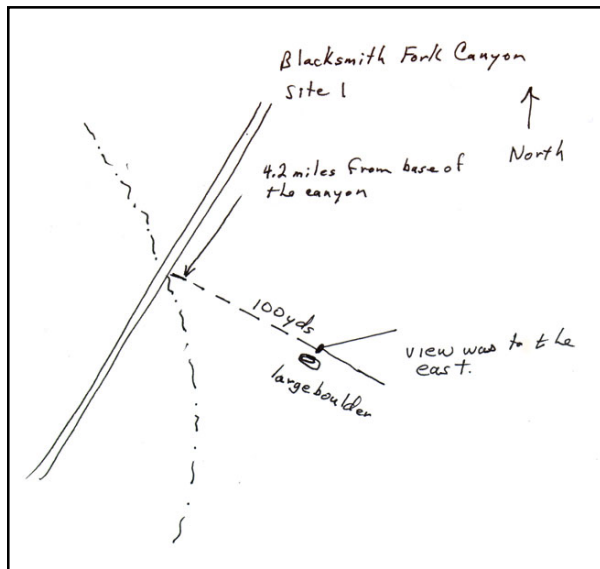 Blacksmith Fork Canyon
Site 1
North
4.2 miles from base of
the canyon
100yds
view was to the
east.
large boulder